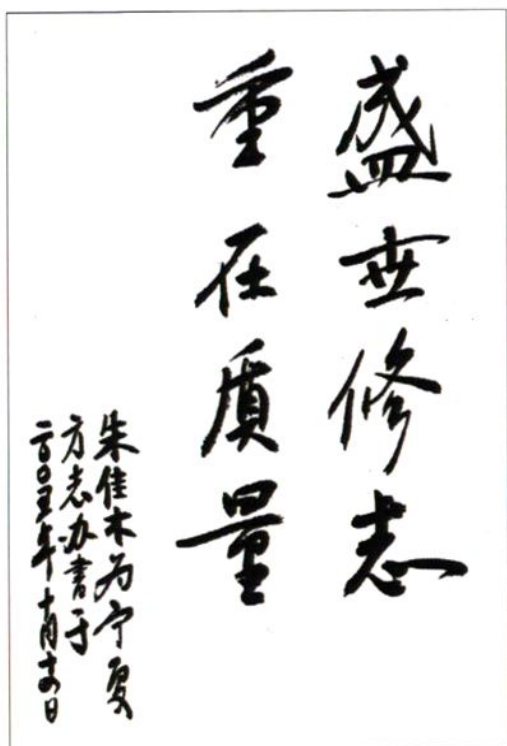 盛世修志
重在质量
朱佳木为宁夏
方志办书于
二〇〇五年十月十四日